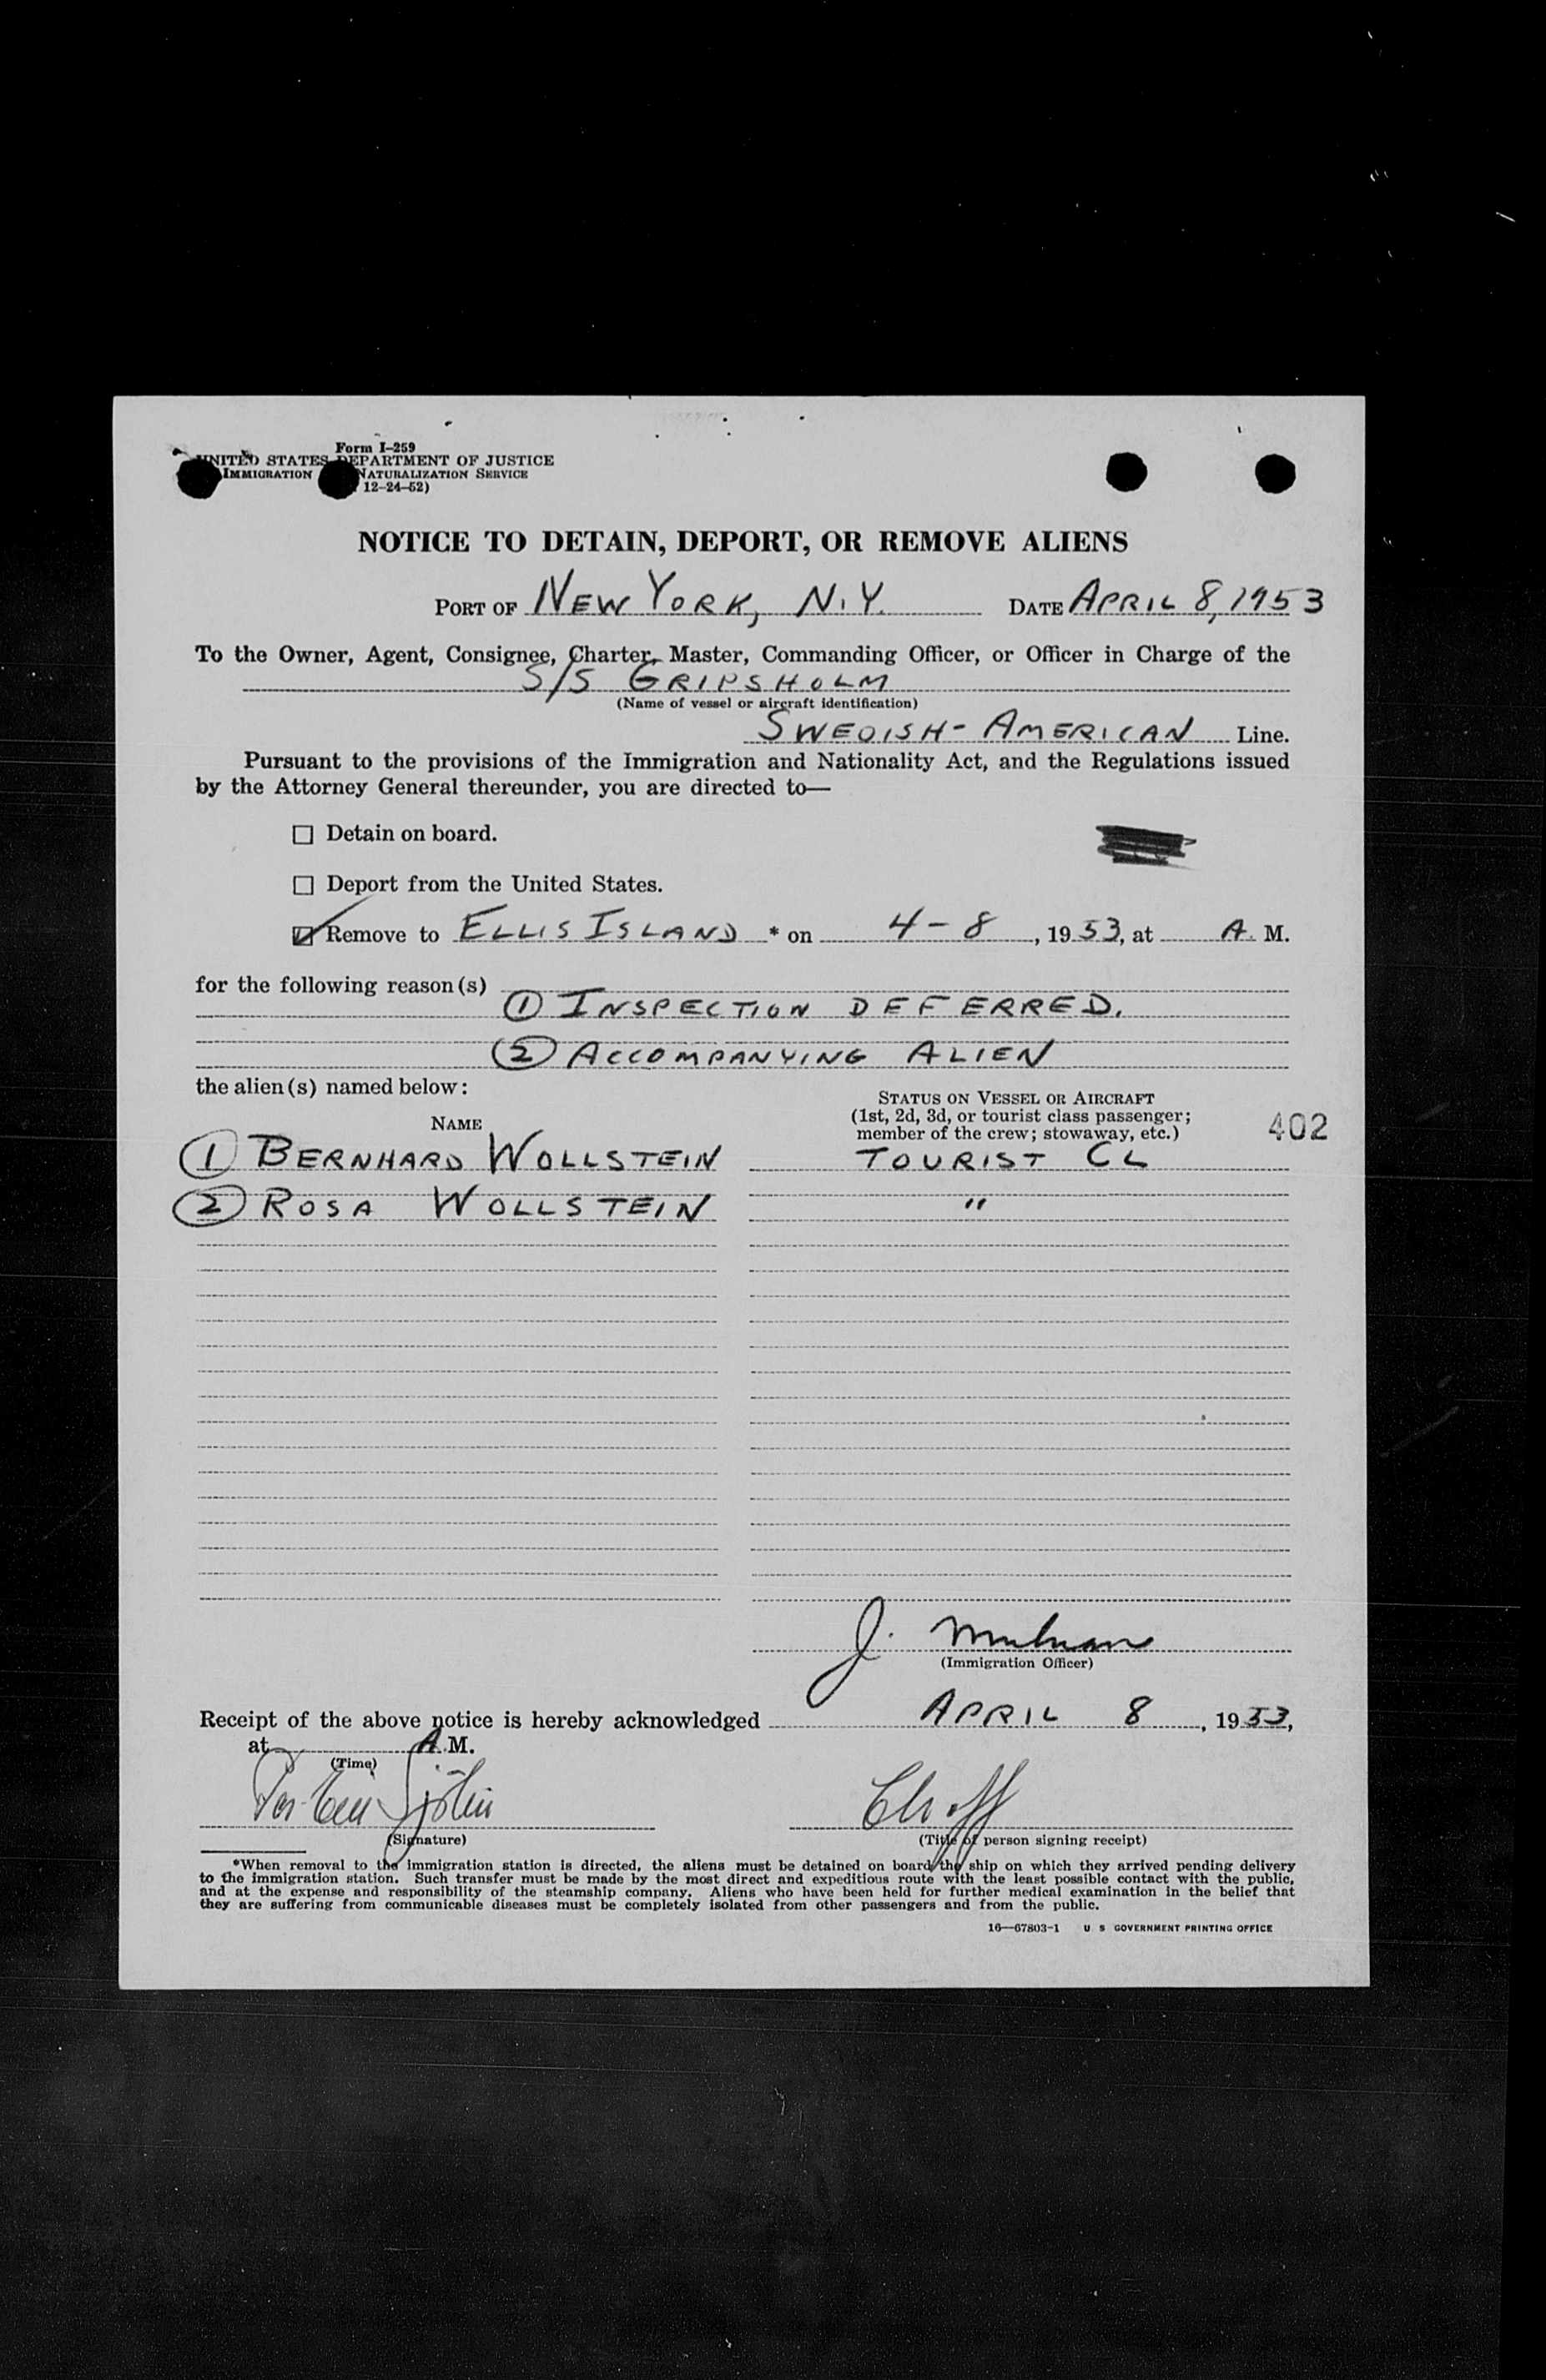 Form I-259
UNITED STATES DEPARTMENT OF JUSTICE
IMMIGRATION NATURALIZATION SERVICE
12-24-52)
NOTICE TO DETAIN, DEPORT, OR REMOVE ALIENS
PORT OF NEW YORK, N.Y. DATE APRIL 8, 1953
To the Owner, Agent, Consignee, Charter, Master, Commanding Officer, or Officer in Charge of the
S/S GRIPSHOLM
(Name of vessel or aircraft identification)
SWEDISH-AMERICAN Line.
Pursuant to the provisions of the Immigration and Nationality Act, and the Regulations issued
by the Attorney General thereunder, you are directed to—
Detain on board.
Deport from the United States.
Remove to ELLIS ISLAND * on 4-8, 1953, at A. M.
for the following reason(s)
① INSPECTION DEFERRED.
② ACCOMPANYING ALIEN
the alien(s) named below:
STATUS ON VESSEL OR AIRCRAFT
(1st, 2d, 3d, or tourist class passenger;
NAME member of the crew; stowaway, etc.) 402
① BERNHARD WOLLSTEIN TOURIST CL
② ROSA WOLLSTEIN "
J.
(Immigration Officer)
Receipt of the above notice is hereby acknowledged APRIL 8, 1953,
at A.M.
(Time)
Sjölin
(Signature) (Title of person signing receipt)
*When removal to the immigration station is directed, the aliens must be detained on board the ship on which they arrived pending delivery
to the immigration station. Such transfer must be made by the most direct and expeditious route with the least possible contact with the public,
and at the expense and responsibility of the steamship company. Aliens who have been held for further medical examination in the belief that
they are suffering from communicable diseases must be completely isolated from other passengers and from the public.
16—67803-1 U S GOVERNMENT PRINTING OFFICE